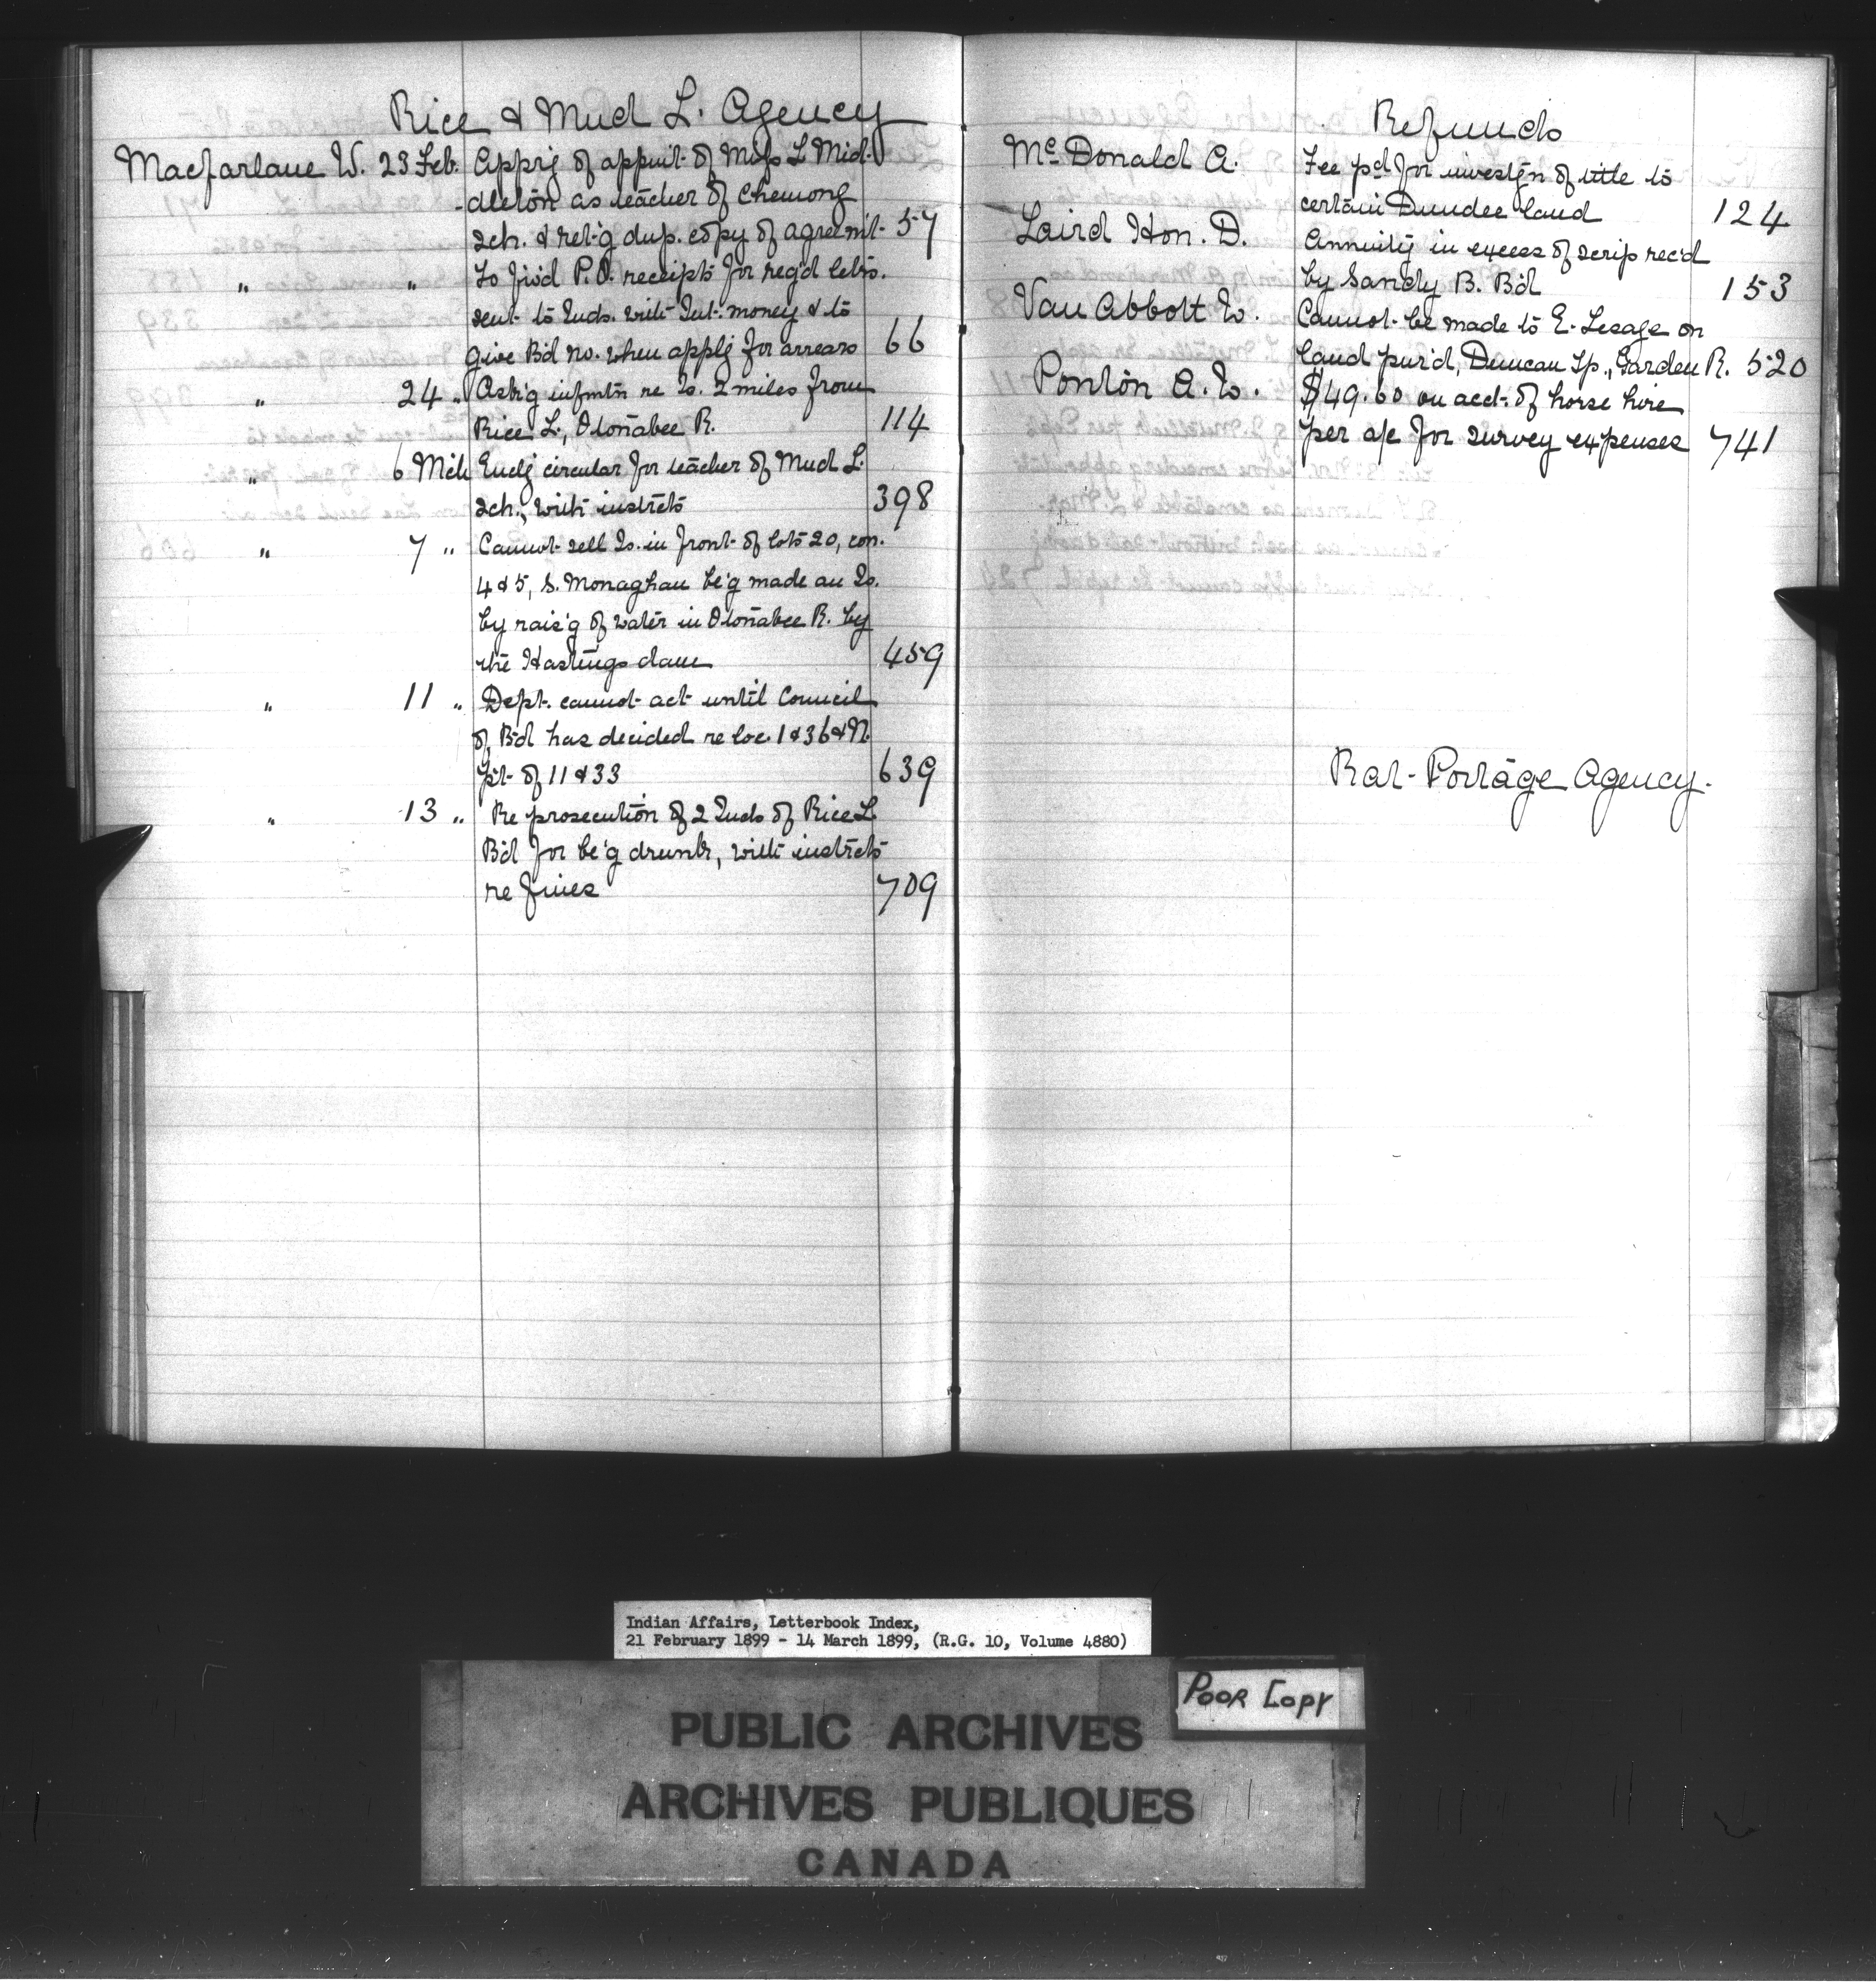 Rice & Mud L. Agency
Macfarlane W. 23 Feb. Apprg of appmt. of Miss L Mid-
-dleton as teacher of Chemong
sch. & ret'g dup. copy of agreem't. 57
" " To fw'd P.O. receipts for reg'd letrs.
sent to Inds. with Int. money & to
give B'd no. when applg for arrears 66
" 24 " Ask'g infmtn re Is. 2 miles from
Rice L., Otonabee R. 114
" 6 Mch Endg circular for teacher of Mud L.
sch., with instrcts 398
" 7 " Cannot sell Is. in front of lots 20, con.
4 & 5, S. Monaghan be'g made an Is.
by rais'g of water in Otonabee R. by
the Hastings dam 459
" 11 " Dept. cannot act until Council
of B'd has decided re loc. 1 & 36 & N.
pt. of 11 & 33 639
" 13 " Re prosecution of 2 Inds of Rice L.
B'd for be'g drunk, with instrcts
re fines 709
Refunds
McDonald A. Fee pd for investgn of title to
certain Dundee land 124
Laird Hon. D. Annuity in excess of scrip rec'd
by Sandy B. B'd 153
Van Abbott W. Cannot be made to E. Lesage on
land pur'd, Duncan Tp., Garden R. 520
Ponton A. W. $49.60 on acct. of horse hire
per a/c for survey expenses 741
Rat-Portage Agency.
Indian Affairs, Letterbook Index,
21 February 1899 - 14 March 1899, (R.G. 10, Volume 4880)
POOR COPY
PUBLIC ARCHIVES
ARCHIVES PUBLIQUES
CANADA